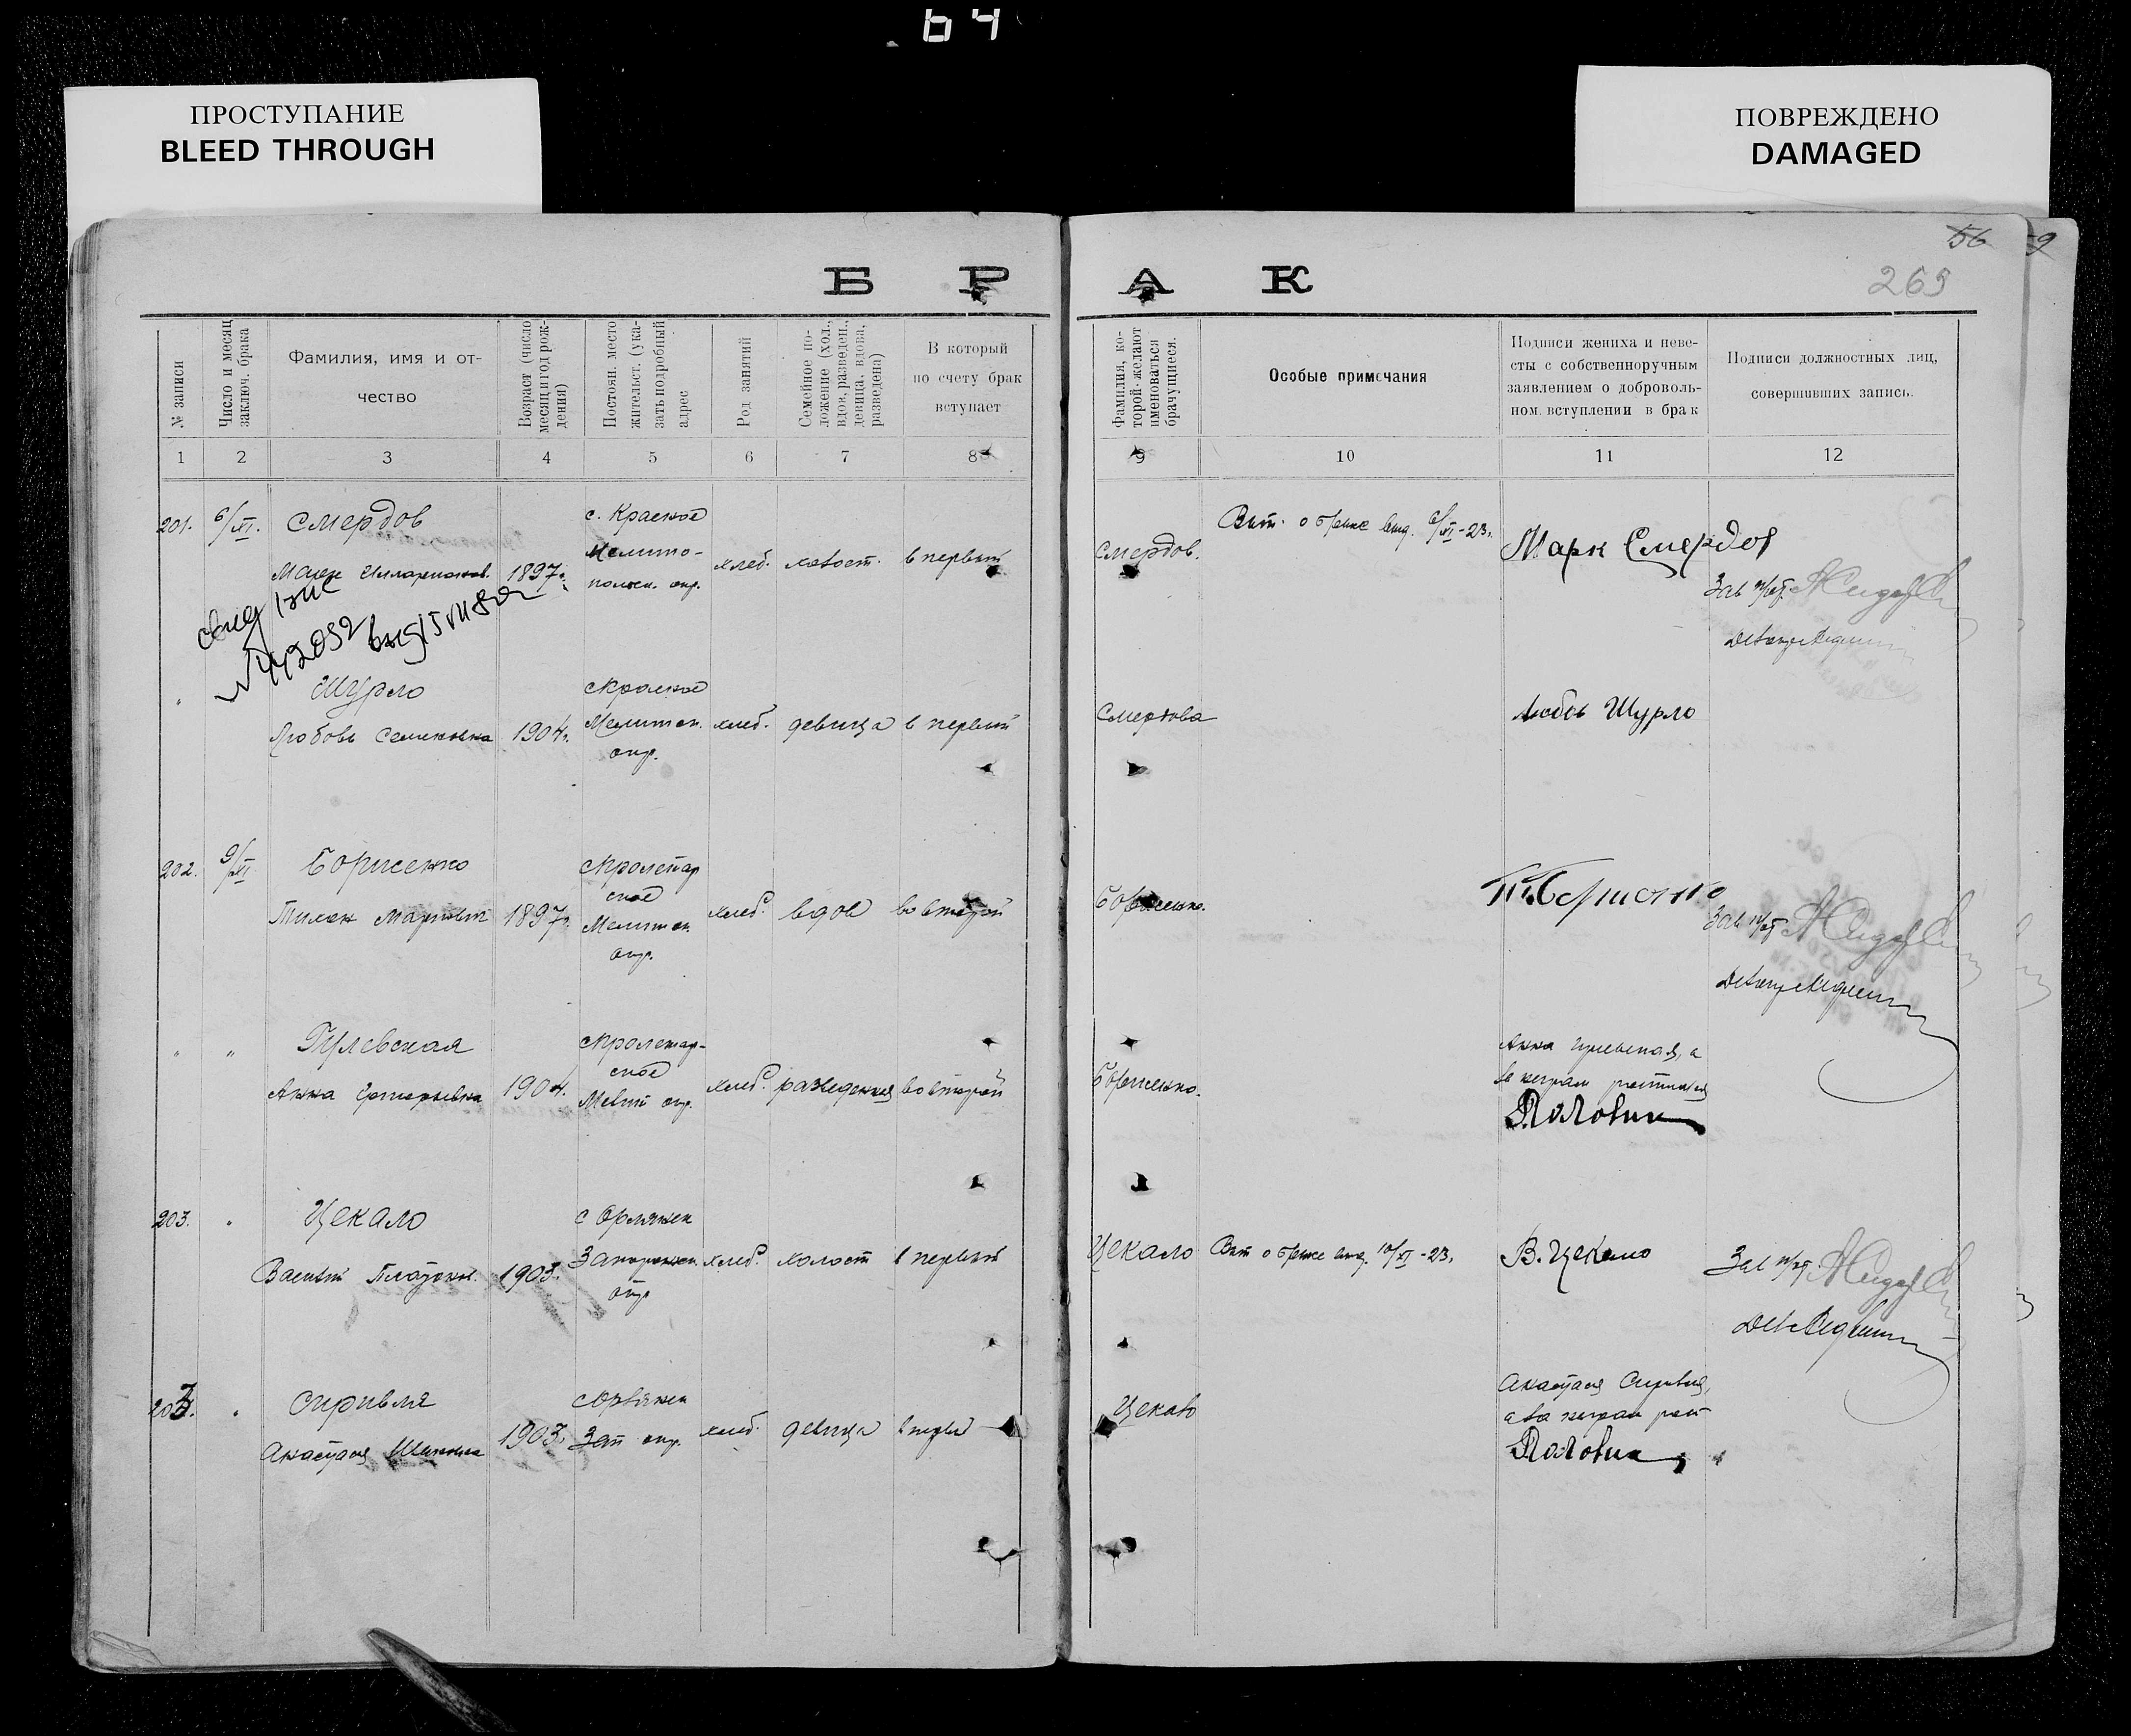 64
ПРОСТУПАНИЕ
BLEED THROUGH
ПОВРЕЖДЕНО
DAMAGED
56
9
265
Б Р А К
№ записи
Число и месяц
заключ. брака
Фамилия, имя и от-
чество
Возраст (число
месяц и год рож-
дения)
Постоян. место
жительст. (ука-
зать подробный
адрес
Род занятий
Семейное по-
ложение (хол.,
вдов, разведен.,
девица, вдова,
разведена)
В который
по счету брак
вступает
Фамилия, ко-
торой желают
именоваться
брачущиеся.
Особые примечания
Подписи жениха и неве-
сты с собственноручным
заявлением о доброволь-
ном вступлении в брак
Подписи должностных лиц,
совершивших запись.
1 2 3 4 5 6 7 8 9 10 11 12
201. 6/XI. Смердов
1897г.
с. Красное
Мелито-
польск. окр.
хлеб. холост. в первый
Смердов.
Вып. о браке выд. 6/XI-23г.
Марк Смердов
Зав п/от
" Шурло
Любовь Семеновна 1904г.
с Красное
Мелитоп.
окр.
хлеб. девица в первый
Смердова
Любовь Шурло
202. 9/XI Борисенко
1897г.
с Пролетар
ское
Мелитоп.
окр.
хлеб. вдов во второй
Борисенко.
Зав п/от
" " Гулевская
Анна Григорьевна 1904.
с Пролетар-
ское
Мелит окр.
хлеб. разведенная во второй
Борисенко.
Анна Гулевская, а
за неграм расписался
Половик
203. " Цекало
Василий Платонов. 1903.
с Орлянск
Запорожск.
окр
хлеб. холост в первый
Цекало
Вып о браке выд. 10/XI-23г.
В. Цекало
Зав п/от
203. " Сиривля
Анастасия 1903.
с Орлянск
Зап окр.
хлеб. девица в первый
Цекало
Анастасия Сиривля,
а за неграм расп
Половик